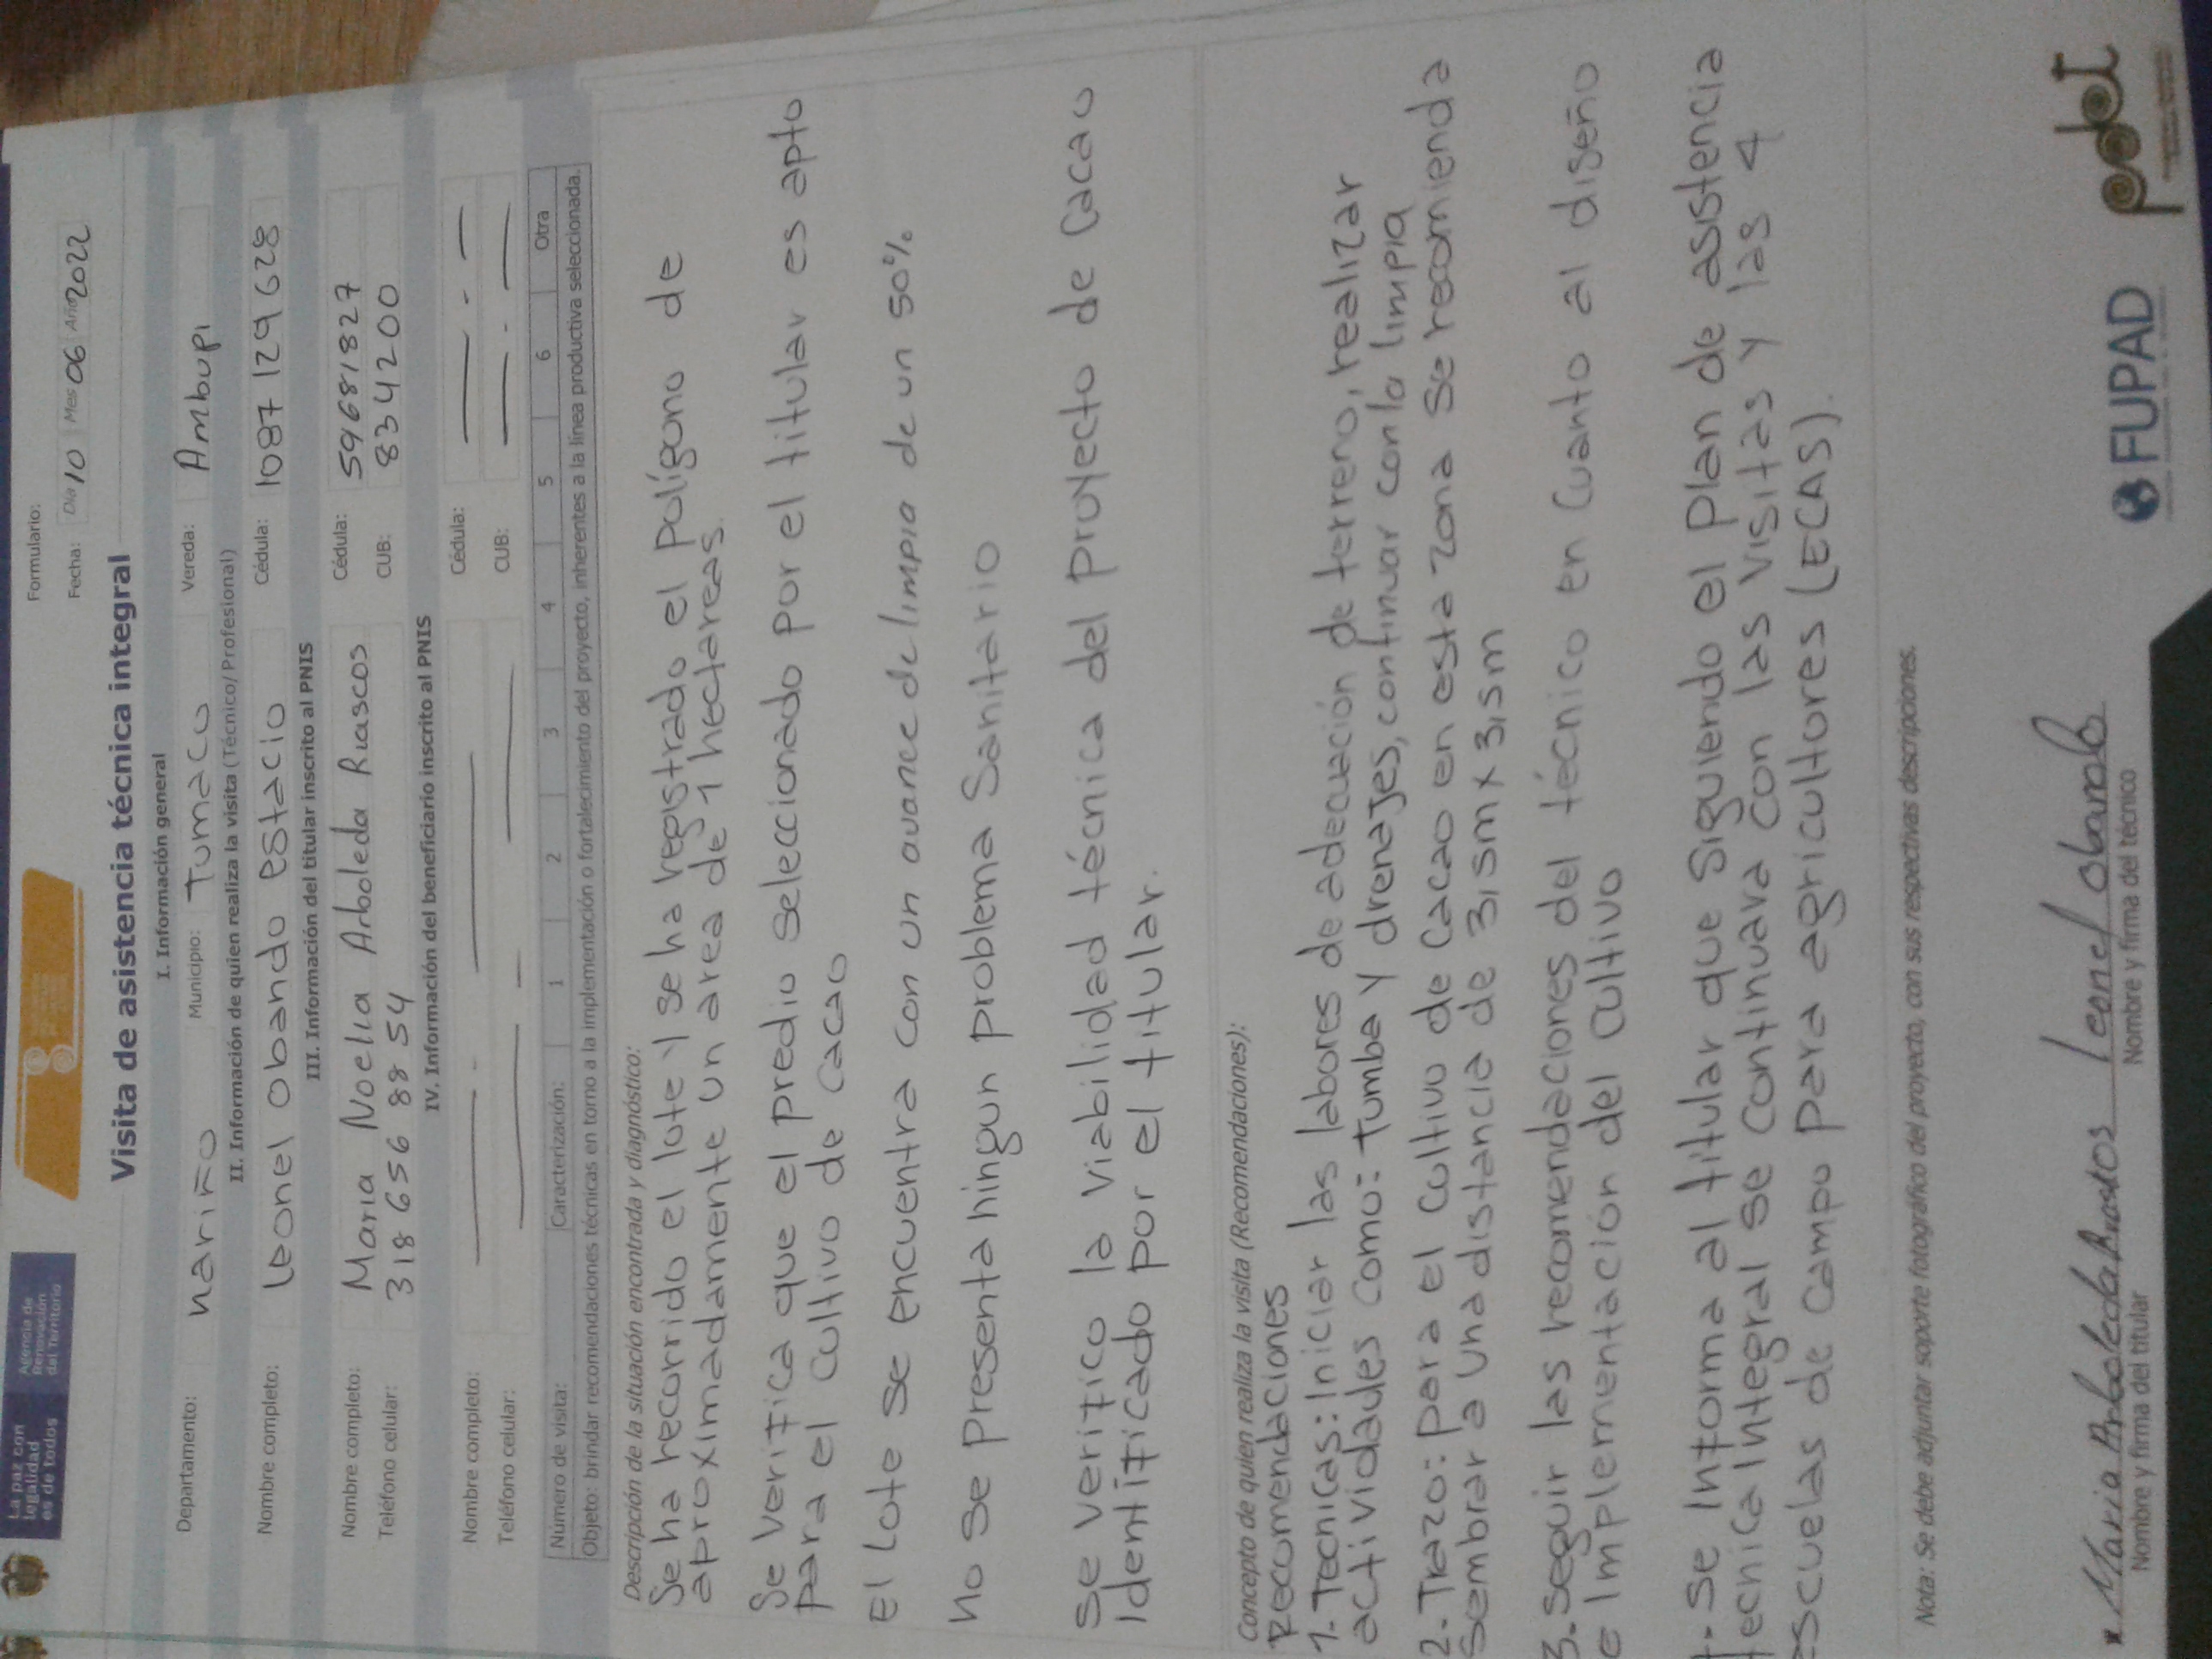 La paz con
legalidad
es de todos
Agencia de
Renovación
del Territorio
Formulario:
Fecha: Día 10 Mes 06 Año 2022
Visita de asistencia técnica integral
I. Información general
Departamento: nariño Municipio: Tumaco Vereda: Ambupi
II. Información de quien realiza la visita (Técnico/ Profesional)
Nombre completo: leonel obando estacio Cédula: 1087 129 628
III. Información del titular inscrito al PNIS
Nombre completo: Maria Noelia Arboleda Riascos Cédula: 59681827
Teléfono celular: 318 656 88 54 CUB: 834200
IV. Información del beneficiario inscrito al PNIS
Nombre completo: Cédula:
Teléfono celular: CUB:
Número de visita: Caracterización: 1 2 3 4 5 6 Otra
Objeto: brindar recomendaciones técnicas en torno a la implementación o fortalecimiento del proyecto, inherentes a la línea productiva seleccionada.
Descripción de la situación encontrada y diagnóstico:
Se ha recorrido el lote y se ha registrado el polígono de
aproximadamente un area de 1 hectareas.
Se verifica que el predio seleccionado por el titular es apto
para el cultivo de cacao
El lote se encuentra con un avance de limpia de un 50%
no se presenta ningun problema sanitario
se verifico la viabilidad técnica del proyecto de cacao
identificado por el titular.
Concepto de quien realiza la visita (Recomendaciones):
Recomendaciones
1. Tecnicas: Iniciar las labores de adecuación de terreno, realizar
actividades como: tumba y drenajes, continuar con la limpia
2. Trazo: para el cultivo de cacao en esta zona se recomienda
sembrar a una distancia de 3,5m x 3,5m
3. seguir las recomendaciones del técnico en cuanto al diseño
e implementación del cultivo
- se informa al titular que siguiendo el plan de asistencia
tecnica integral se continuara con las visitas y las 4
escuelas de campo para agricultores (ECAS).
Nota: Se debe adjuntar soporte fotográfico del proyecto, con sus respectivas descripciones.
x Maria Arboleda Riascos leonel obando
Nombre y firma del titular Nombre y firma del técnico
FUPAD
pdet